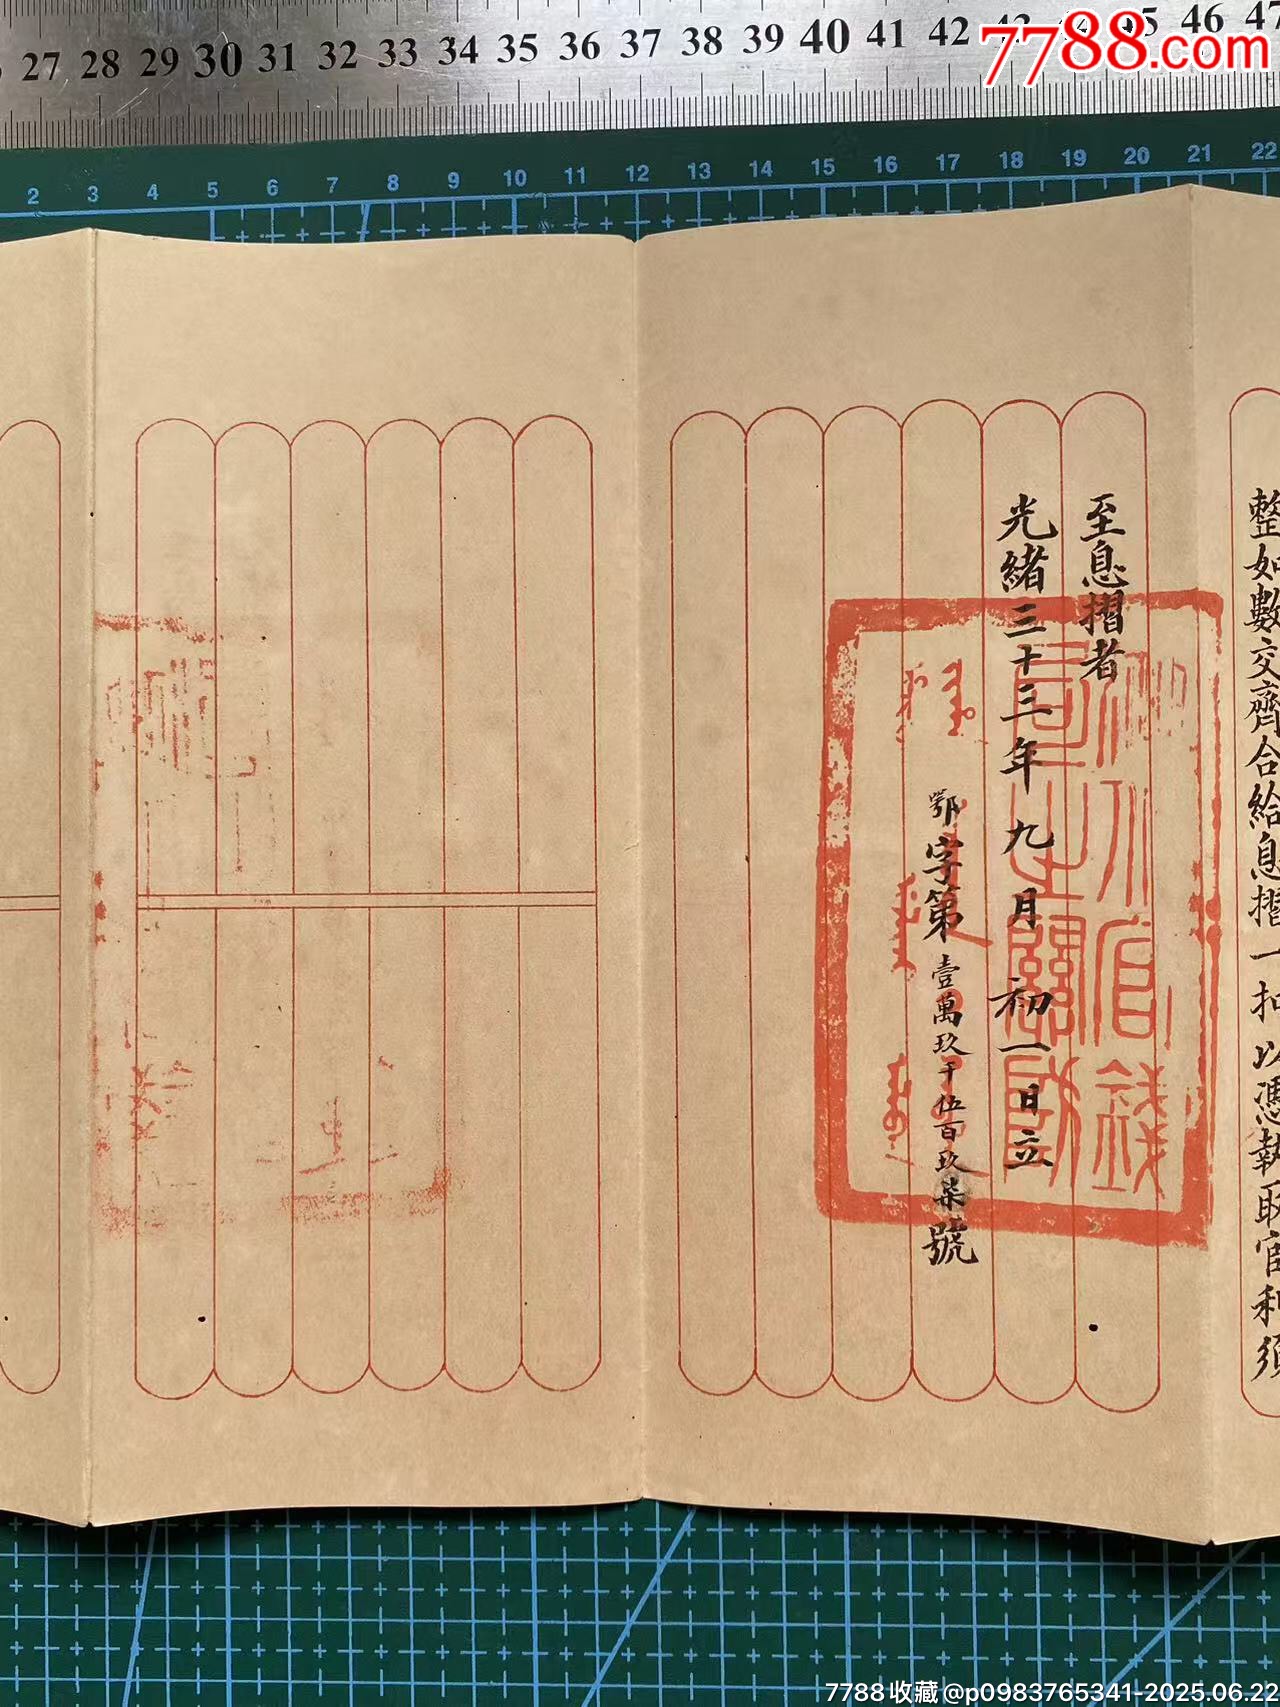 27 28 29 30 31 32 33 34 35 36 37 38 39 40 41 42 43 44 45 46 47
7788.com
2 3 4 5 6 7 8 9 10 11 12 13 14 15 16 17 18 19 20 21 22
整如數交齊合給息摺一扣以憑執取官利須
至息摺者
光緒三十三年九月初一日立
鄂字第壹萬玖千伍百玖柒號
官錢
7788收藏@p0983765341-2025.06.22